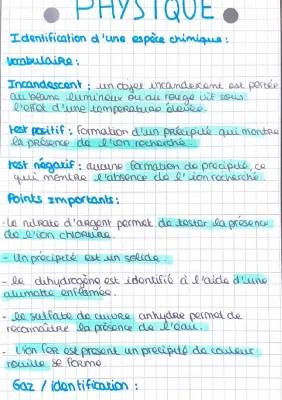 PHYSIQUE
Identification d'une espèce chimique :
vocabulaire :
Incandescent : un objet incandescent est portée
au blanc lumineux ou au rouge vif sous
l'effet d'une température élevée.
test positif : formation d'un précipité qui montre
la présence de l'ion recherché.
test négatif : aucune formation de précipité, ce
qui montre l'absence de l'ion recherché.
Points Importants :
-Le nitrate d'argent permet de tester la présence
de l'ion chlorure.
- Un précipité est un solide.
- le dihydrogène est identifié à l'aide d'une
allumette enflammée.
- le sulfate de cuivre anhydre permet de
reconnaître la présence de l'eau.
- L'ion fer est présent un précipité de couleur
rouille se forme.
Gaz / identification :